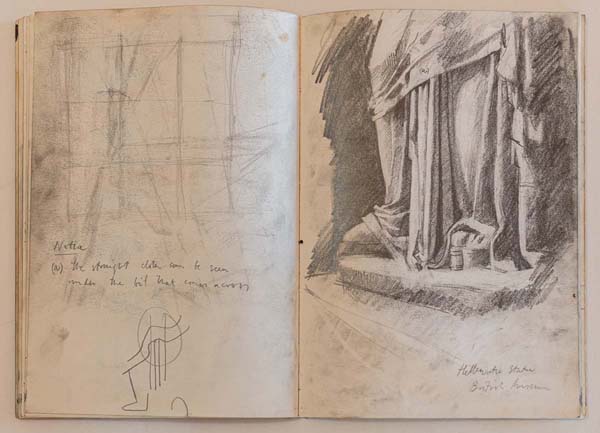 Notice
(a) the straight cloth can be seen
under the bit that comes across
(a)
Hellenistic Statue
British Museum